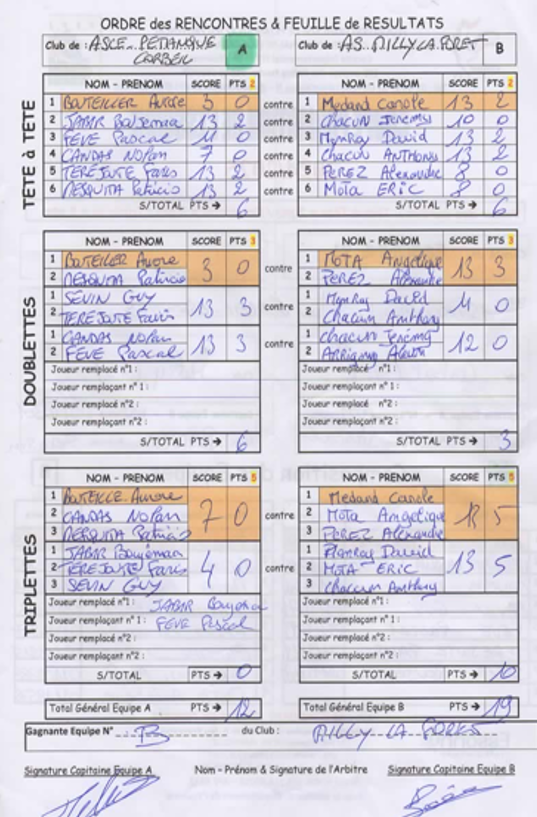 ORDRE des RENCONTRES & FEUILLE de RESULTATS
Club de : ASCE PETANQUE CORBEIL A Club de : AS MILLY LA FORET B
TÊTE à TÊTE
NOM - PRENOM SCORE PTS 2 NOM - PRENOM SCORE PTS 2
1 BOUTEILLER Aurore 3 0 contre 1 Medard Carole 13 2
2 JABIR 13 2 contre 2 Chacun Jeremy 10 0
3 FEVE Pascal 11 0 contre 3 David 13 2
4 CANDAS Nolan 7 0 contre 4 Chacun ANTHONY 13 2
5 TEREJOUTE Faris 13 2 contre 5 PEREZ Alexandre 8 0
6 MESQUITA Patricio 13 2 contre 6 Mota ERIC 8 0
S/TOTAL PTS → 6 S/TOTAL PTS → 6
DOUBLETTES
NOM - PRENOM SCORE PTS 3 NOM - PRENOM SCORE PTS 3
1 BOUTEILLER Aurore 3 0 contre 1 MOTA Angelique 13 3
2 MESQUITA Patricio 2 PEREZ Alexandre
1 SEVIN GUY 13 3 contre 1 David 11 0
2 TEREJOUTE Faris 2 Chacun Anthony
1 CANDAS Nolan 13 3 contre 1 Chacun Jeremy 12 0
2 FEVE Pascal 2
Joueur remplacé n°1 : Joueur remplacé n°1 :
Joueur remplaçant n°1 : Joueur remplaçant n°1 :
Joueur remplacé n°2 : Joueur remplacé n°2 :
Joueur remplaçant n°2 : Joueur remplaçant n°2 :
S/TOTAL PTS → 6 S/TOTAL PTS → 3
TRIPLETTES
NOM - PRENOM SCORE PTS 5 NOM - PRENOM SCORE PTS 5
1 Aurore 1 Medard Carole
2 CANDAS Nolan 7 0 contre 2 Mota Angelique 5
3 MESQUITA Patricio 3 PEREZ Alexandre
1 JABIR 1 David
2 TEREJOUTE Faris 4 0 contre 2 MOTA ERIC 13 5
3 SEVIN GUY 3 Chacun Anthony
Joueur remplacé n°1 : JABIR Joueur remplacé n°1 :
Joueur remplaçant n°1 : FEVE Pascal Joueur remplaçant n°1 :
Joueur remplacé n°2 : Joueur remplacé n°2 :
Joueur remplaçant n°2 : Joueur remplaçant n°2 :
S/TOTAL PTS → 0 S/TOTAL PTS → 10
Total Général Equipe A PTS → 12 Total Général Equipe B PTS → 19
Gagnante Equipe N° B du Club : MILLY LA FORET
Signature Capitaine Equipe A Nom - Prénom & Signature de l'Arbitre Signature Capitaine Equipe B